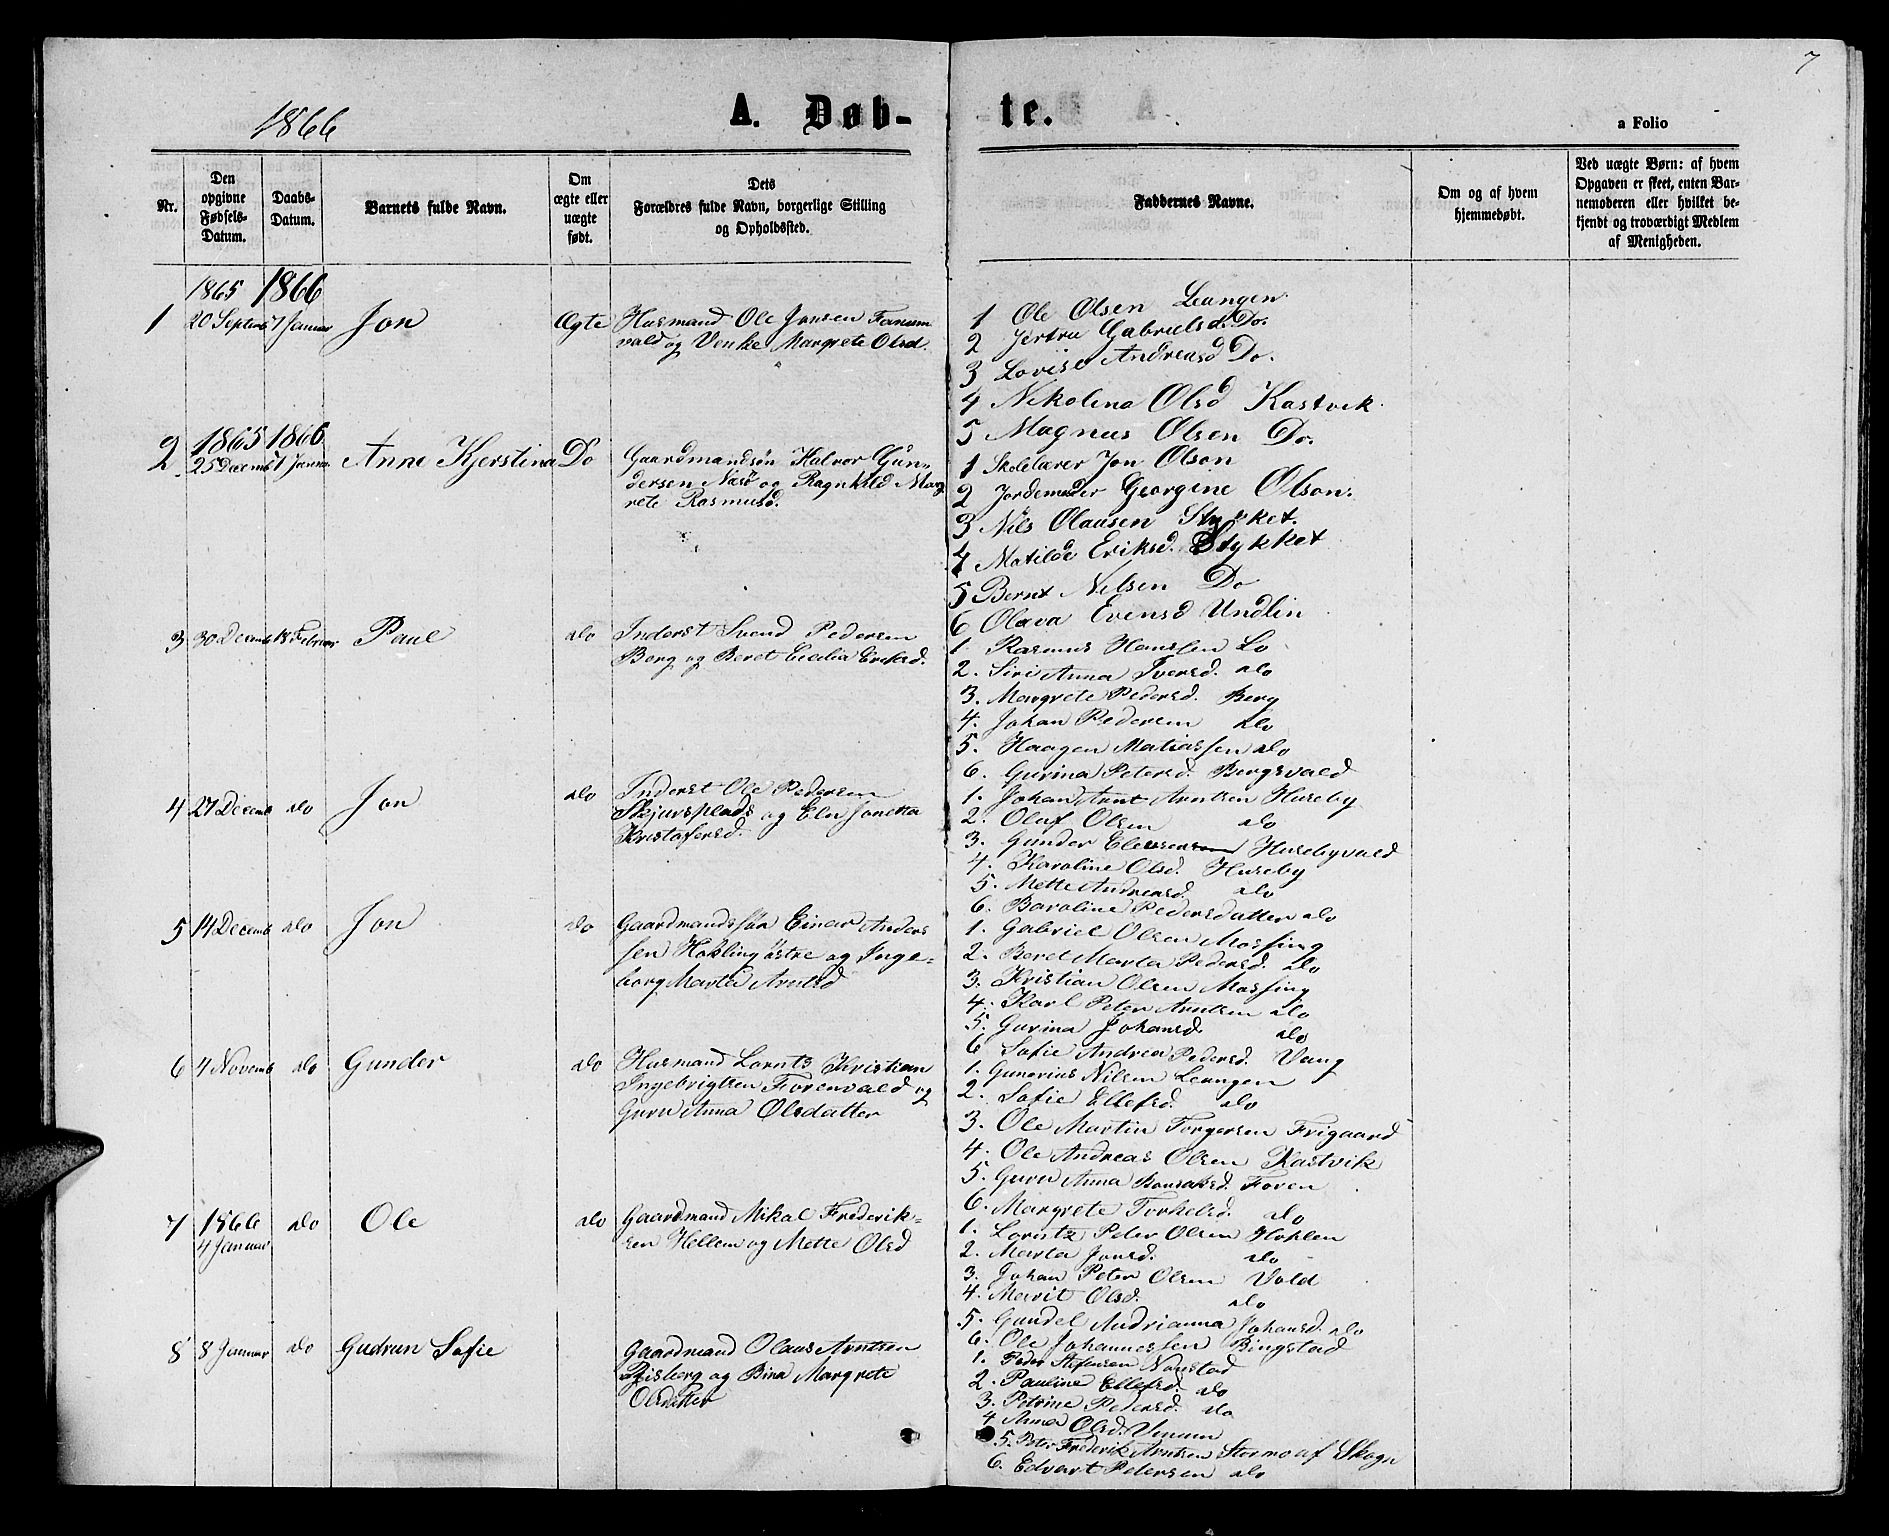 7
1866
A. Døb-
te.
a Folio
Nr.
Den
opgivne
Fødsels-
Datum.
Daabs-
Datum.
Barnets fulde Navn.
Om
ægte eller
uægte
født.
Dets
Forældres fulde Navn, borgerlige Stilling
og Opholdssted.
Faddernes Navne.
Om og af hvem
hjemmedøbt.
Ved uægte Børn: af hvem
Opgaven er skeet, enten Bar-
nemoderen eller hvilket be-
kjendt og troværdigt Medlem
af Menigheden.
1865 1866
1 20 Septemb 7 Januar Jon Ægte Husmand Ole Jonsen
vald og Venke Margrete Olsd.
1 Ole Olsen Leangen
2 Jertru Gabrielsd. Do.
3 Lovise Andreasd Do.
4 Nikolina Olsd Kastvik
5 Magnus Olsen Do.
1865 1866
2 25 Decemb 7 Januar Anne Kjerstina Do Gaardmandsøn Halvor Gun-
dersen Næsø og Ragnhild Marg
rete Rasmusd.
1 Skolelærer Jon Olson
2 Jordemoder Georgine Olson.
3 Nils Olausen Stykket.
4 Matilde Eriksd. Stykket
5 Bernt Nelsen Do
6 Olava Evensd Undlin
3 30 Decemb 18 Februar Paul do Inderst Svend Pedersen
Berg og Beret Cecilia Eriksd.
1. Rasmus Hanssen Lo
2. Siri Anna Iversd. do
3. Margrete Pedersd. Berg
4. Johan Pedersen do
5. Haagen Matiassen do
6. Gurina Petersd. Bergsvald
4 27 Decemb do Jon do Inderst Ole Pedersen
Skjervsplads og Elen Jonetta
Kristofersd.
1. Johan Arnt Arntsen Huseby
2. Oluf Olsen do
3. Gunder Husebyvald
4. Karoline Olsd. Huseby
5. Mette Andreasd. do
6. Baroline Pedersdatter do
5 14 Decemb do Jon do Gaardmandssøn Einar Anders
sen Hokling østre og Inge-
borg Marta Arntsd
1. Gabriel Olsen Mossing
2. Beret Marta Pedersd. do
3. Kristian Olsen Mossing
4. Karl Peter Arntsen do
5. Gurina Johansd. do
6 Sofie Andrea Pedersd. Vang
6 4 Novemb do Gunder do Husmand Lornts Kristian
Ingebrigtsen Forenvald og
Guru Anna Olsdatter
1. Gunerius Nilsen Leangen
2. Sofie Ellefsd. do
3. Ole Martin Torgersen Frigaard
4. Ole Andreas Olsen Kastvik
5. Guru Anna Foren
6. Margrete Torkelsd. do
7 1866 do Ole do Gaardmand Mikal Frederik-
4 Januar sen Hellem og Mette Olsd
1. Lorntz Peter Olsen Hohlen
2. Marta Jonsd. do
3. Johan Peter Olsen Vold
4. Marit Olsd. do
5. Gundel Andrianna Johansd. do
6. Ole Johannessen Bingstad
8 8 Januar do Gudrun Sofie Gaardmand Olaus Arntsen
og Bina Margrete
Olsdatter
1. Peder Stefansen Nonstad
2. Pauline Ellefsd. do
3. Petrine Pedersd. do
4 Anna Olsd. Vinum
5. Peter Frederik Arntsen Stormo af Skogn
6. Edvart Petersen do